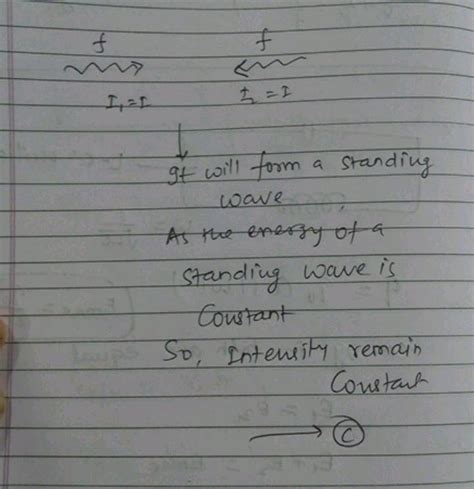 f f
I₁=I I₂=I
It will form a standing
wave.
As the energy of a
standing wave is
Constant
So, Intensity remain
Constant
C